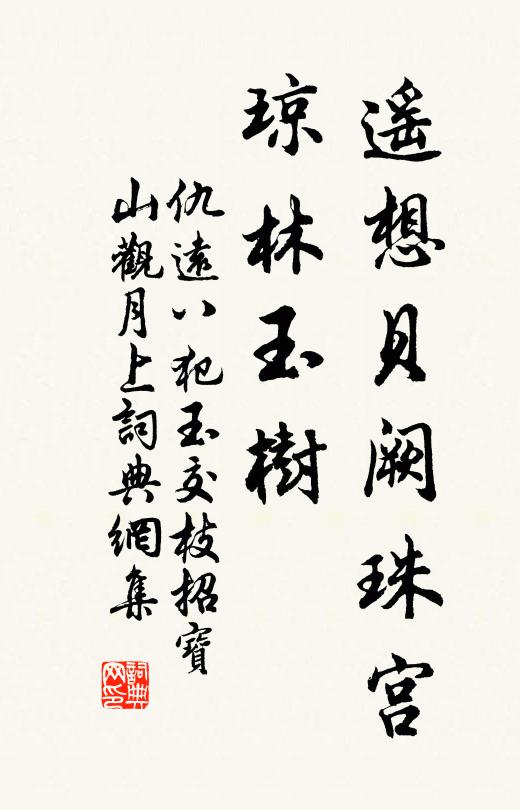 遥想貝阙珠宫
琼林玉樹
仇遠八犯玉交枝招寶
山觀月上詞典網集
詞典網印